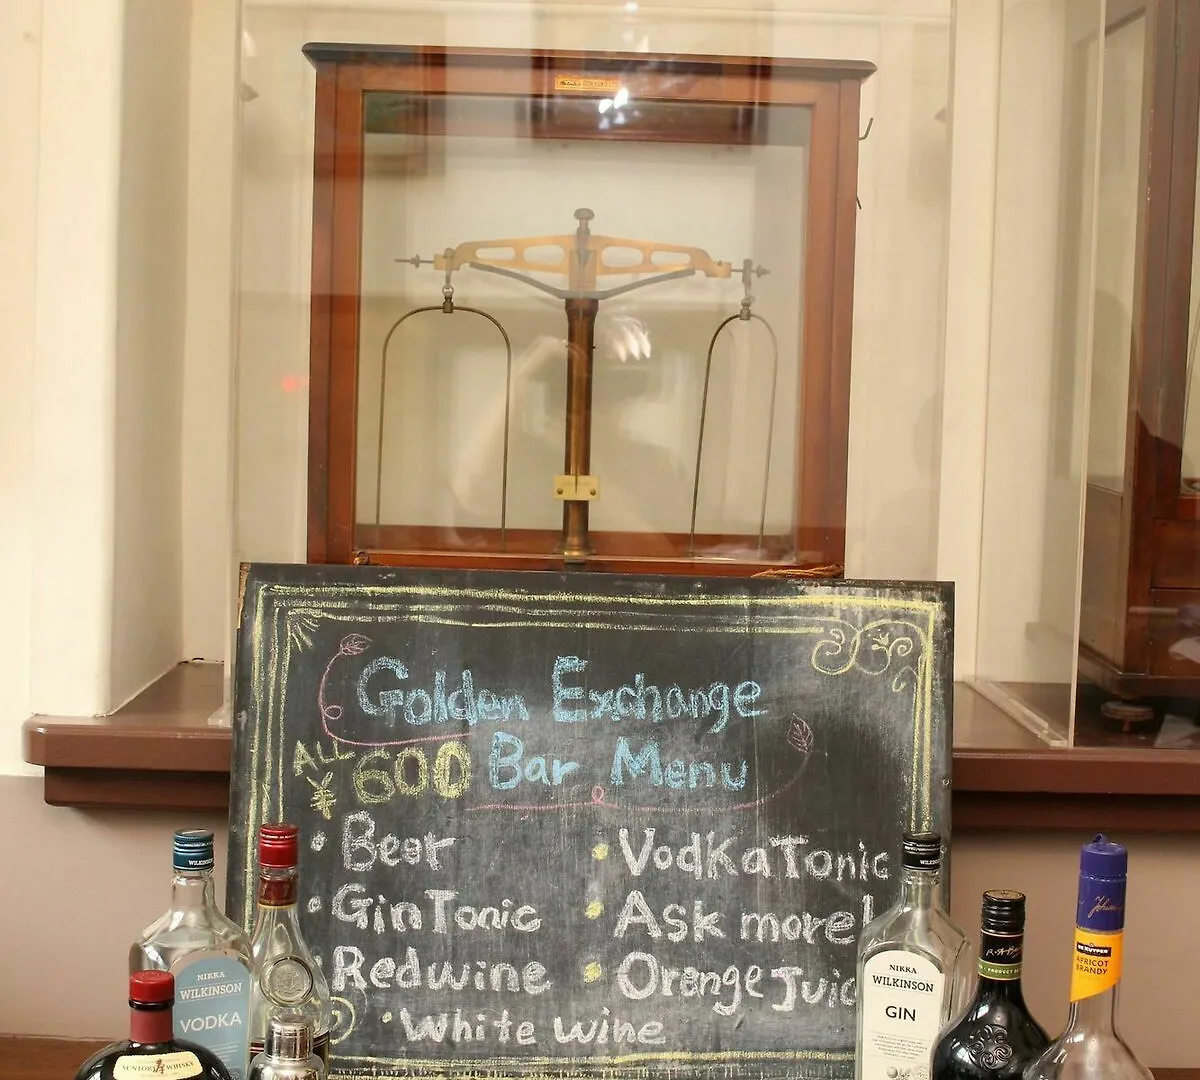 Golden Exchange
ALL ¥ 600 Bar Menu
• Beer
• Gin Tonic
• Redwine
• White wine
• VodkaTonic
• Ask more!
• Orange Juic
NIKKA
WILKINSON
VODKA
SUNTORY WHISKY
NIKKA
WILKINSON
GIN
DE KUYPER
APRICOT
BRANDY